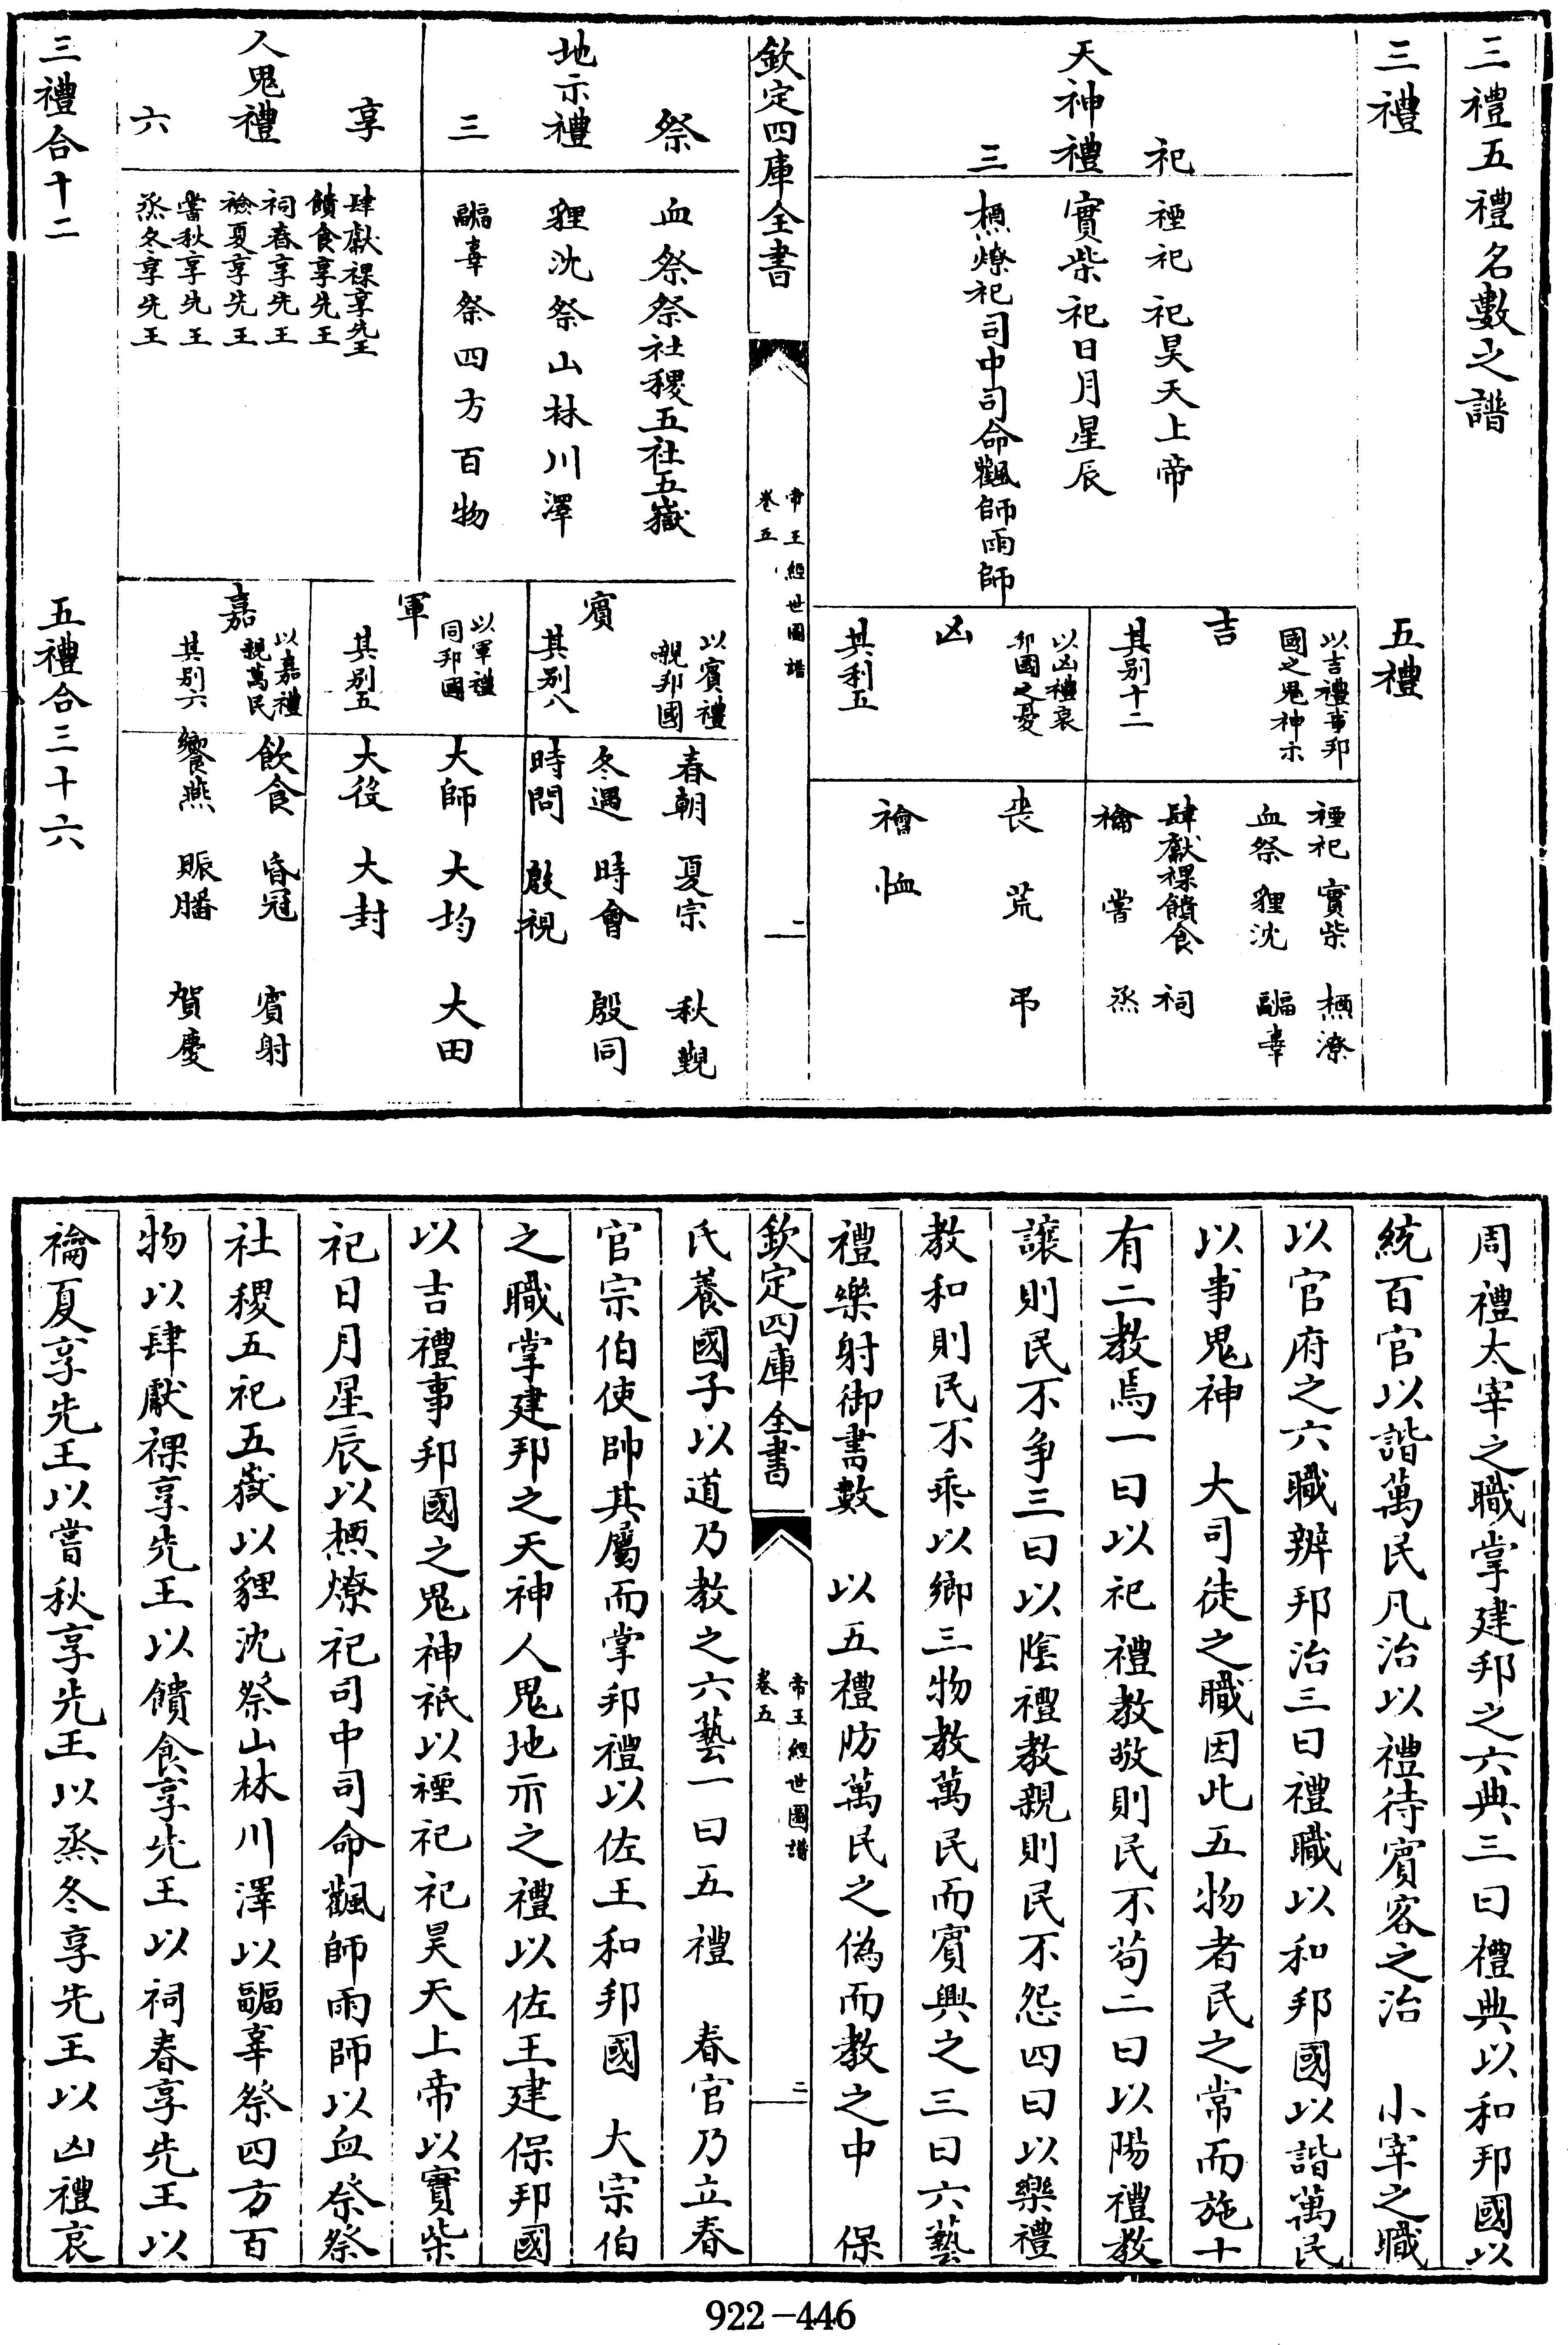 三禮五禮名數之譜
三禮
五禮
天神禮三
祀
禋祀祀昊天上帝
實柴祀日月星辰
槱燎祀司中司命飌師雨師
吉
以吉禮事邦
國之鬼神示
其别十二
禋祀 實柴 槱燎
血祭 貍沈 疈辜
肆獻祼饋食 祠
禴 嘗 烝
凶
以凶禮哀
邦國之憂
其利五
丧 荒 弔
禬 恤
欽定四庫全書
帝王經世圖譜
卷五
二
地示禮三
祭
血祭祭社稷五社五嶽
貍沈祭山林川澤
疈辜祭四方百物
人鬼禮六
享
肆獻祼享先王
饋食享先王
祠春享先王
禴夏享先王
嘗秋享先王
烝冬享先王
賓
以賓禮
親邦國
其别八
春朝 夏宗 秋覲
冬遇 時會 殷同
時問 殷視
軍
以軍禮
同邦國
其别五
大師 大均 大田
大役 大封
嘉
以嘉禮
親萬民
其别六
飲食 昏冠 賓射
饗燕 賑膰 賀慶
三禮合十二
五禮合三十六
周禮太宰之職掌建邦之六典三曰禮典以和邦國以
統百官以諧萬民凡治以禮待賓客之治 小宰之職
以官府之六職辨邦治三曰禮職以和邦國以諧萬民
以事鬼神 大司徒之職因此五物者民之常而施十
有二教焉一曰以祀禮教敬則民不苟二曰以陽禮教
讓則民不争三曰以陰禮教親則民不怨四曰以樂禮
教和則民不乖以鄉三物教萬民而賓興之三曰六藝
禮樂射御書數 以五禮防萬民之偽而教之中 保
欽定四庫全書
帝王經世圖譜
卷五
二
氏養國子以道乃教之六藝一曰五禮 春官乃立春
官宗伯使帥其屬而掌邦禮以佐王和邦國 大宗伯
之職掌建邦之天神人鬼地示之禮以佐王建保邦國
以吉禮事邦國之鬼神祇以禋祀祀昊天上帝以實柴
祀日月星辰以槱燎祀司中司命飌師雨師以血祭祭
社稷五祀五嶽以貍沈祭山林川澤以疈辜祭四方百
物以肆獻祼享先王以饋食享先王以祠春享先王以
禴夏享先王以嘗秋享先王以烝冬享先王以凶禮哀
922-446